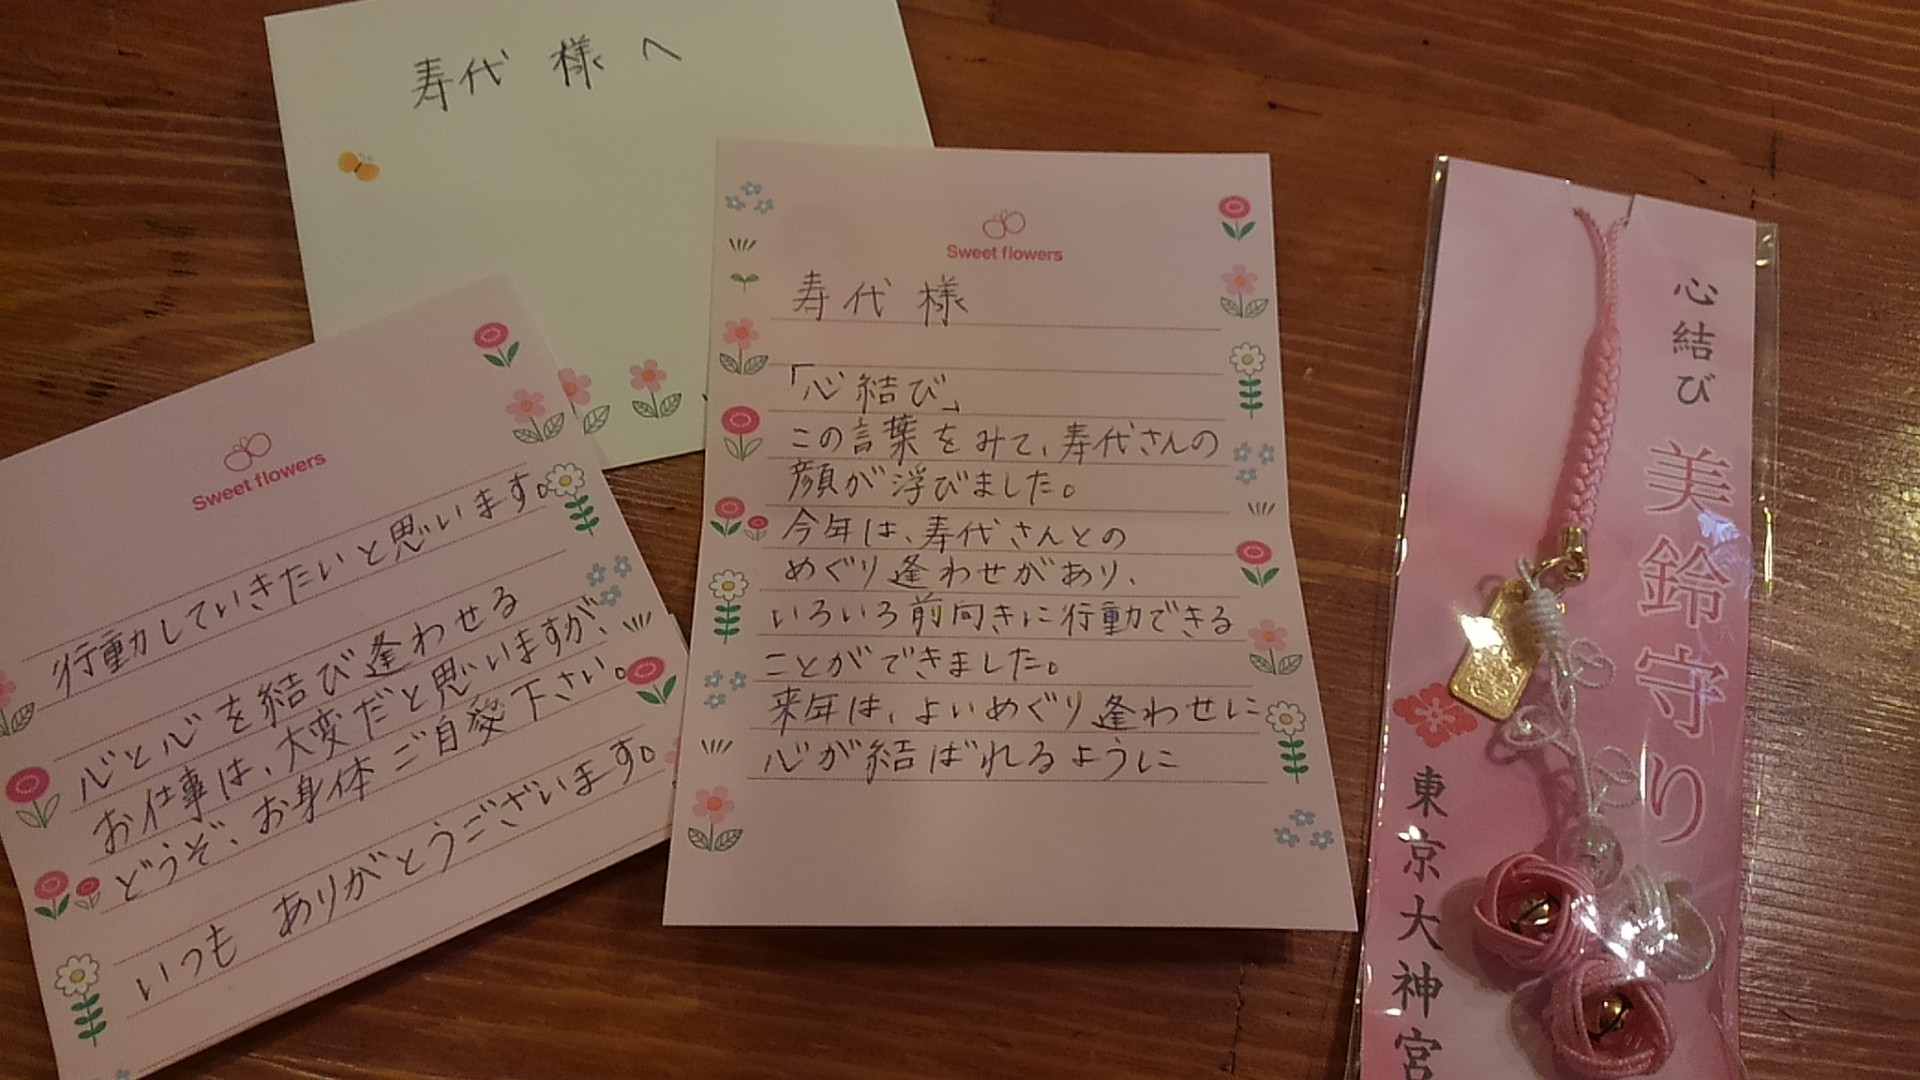 寿代 様 へ
Sweet flowers
寿代 様
「心結び」
この言葉をみて、寿代さんの
顔が浮びました。
今年は、寿代さんとの
めぐり逢わせがあり、
いろいろ前向きに行動できる
ことができました。
来年は、よいめぐり逢わせに
心が結ばれるように
Sweet flowers
行動していきたいと思います。
心と心を結び逢わせる
お仕事は、大変だと思いますが、
どうぞ、お身体ご自愛下さい。
いつも ありがとうございます。
心結び 美鈴守り
東京大神宮